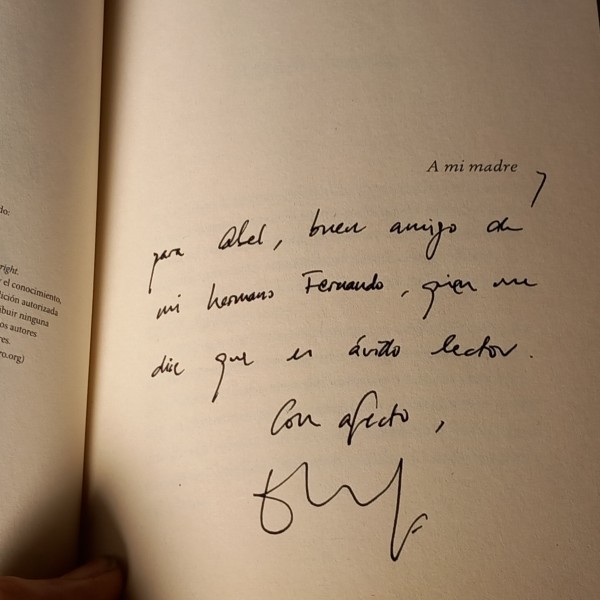 do:
right.
r el conocimiento,
lición autorizada
ibuir ninguna
os autores
res.
ro.org)
A mi madre,
para Abel, buen amigo de
mi hermano Fernando, quien me
dice que es ávido lector.
Con afecto,